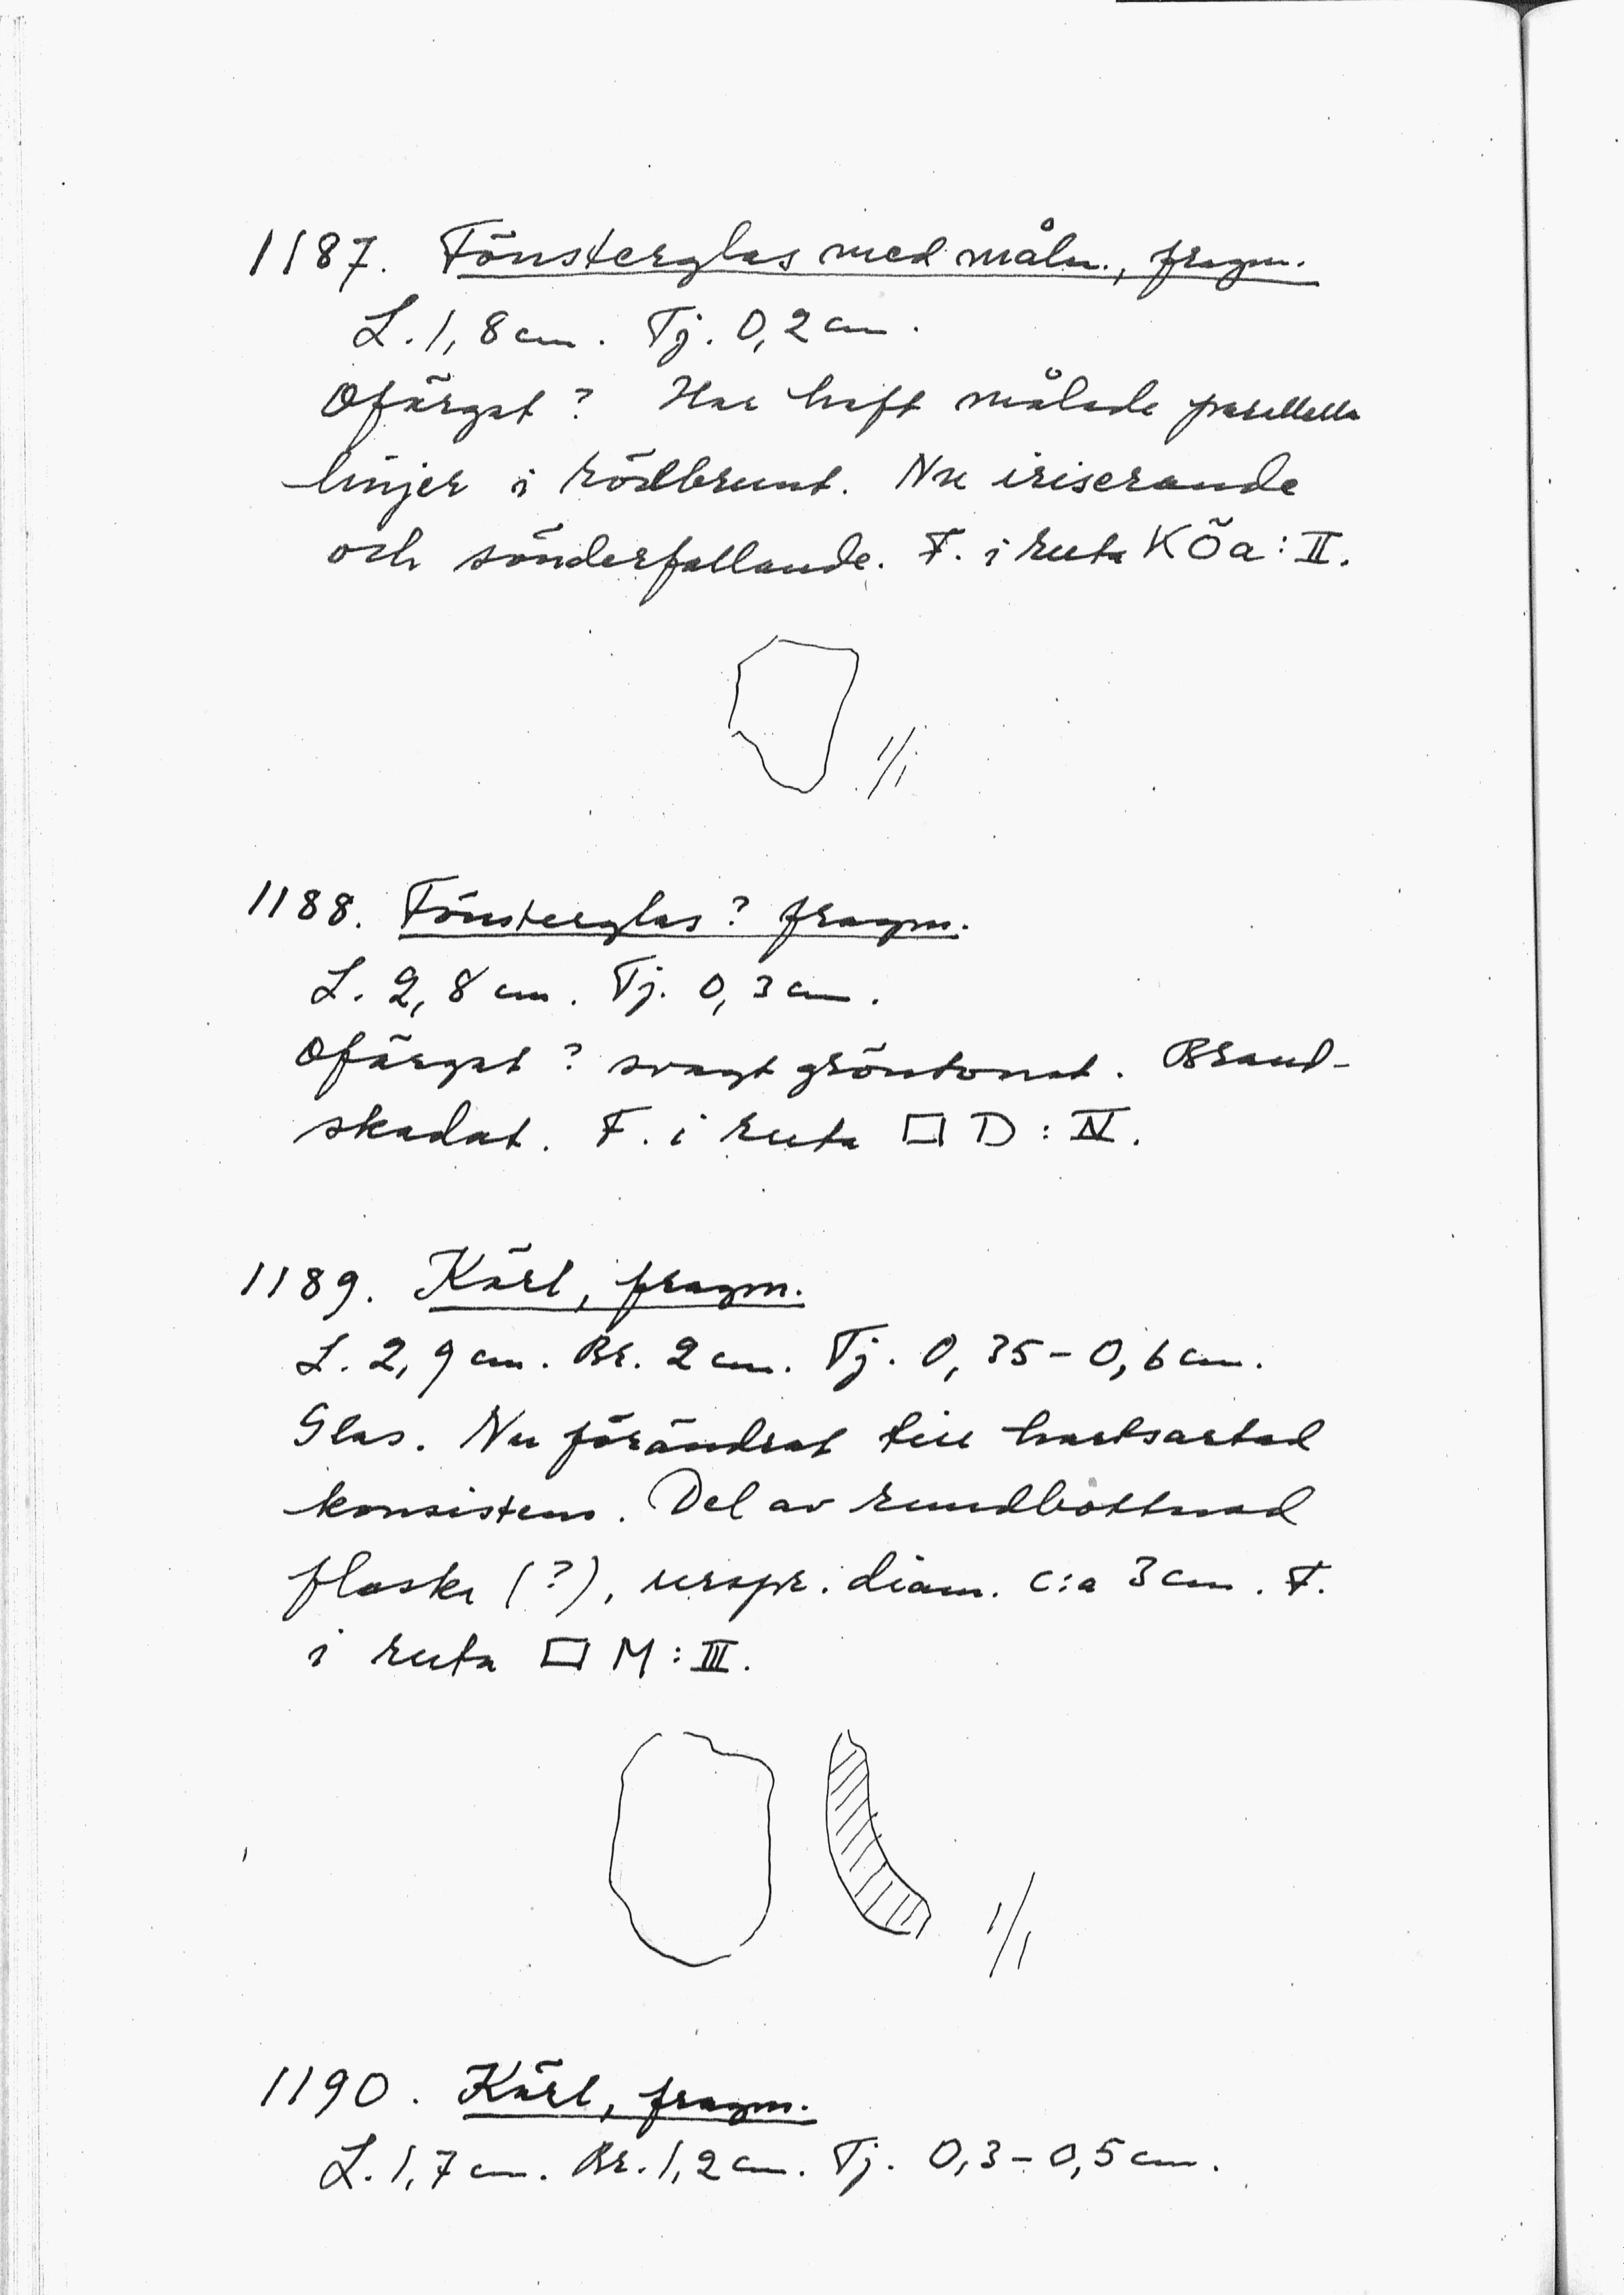 1187. Fönsterglas med måln., fragm.
L. 1,8 cm. Tj. 0,2 cm.
Ofärgat? Har haft målade parallella
linjer i rödbrunt. Nu iriserande
och sönderfallande. F. i ruta KÖa: II.
1/1
1188. Fönsterglas? fragm.
L. 2,8 cm. Tj. 0,3 cm.
Ofärgat? svagt gröntonat. Brand-
skadat. F. i ruta □ D: IV.
1189. Kärl, fragm.
L. 2,9 cm. Br. 2 cm. Tj. 0,35-0,6 cm.
Glas. Nu förändrat till hartsartad
konsistens. Del av rundbottnad
flaska (?), urspr. diam. c:a 3 cm. F.
i ruta □ M: III.
1/1
1190. Kärl, fragm.
L. 1,7 cm. Br. 1,2 cm. Tj. 0,3-0,5 cm.